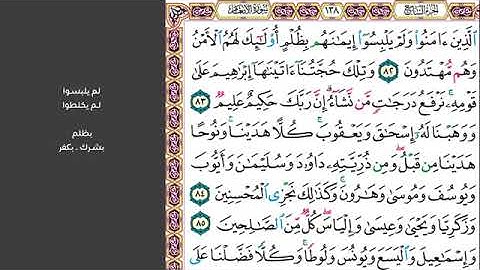 الجزء السابع
١٣٨
سورة الأنعام
ٱلَّذِينَ ءَامَنُوا۟ وَلَمْ يَلْبِسُوٓا۟ إِيمَٰنَهُم بِظُلْمٍ أُو۟لَٰٓئِكَ لَهُمُ ٱلْأَمْنُ
وَهُم مُّهْتَدُونَ ٨٢ وَتِلْكَ حُجَّتُنَآ ءَاتَيْنَٰهَآ إِبْرَٰهِيمَ عَلَىٰ
قَوْمِهِۦ ۚ نَرْفَعُ دَرَجَٰتٍ مَّن نَّشَآءُ ۗ إِنَّ رَبَّكَ حَكِيمٌ عَلِيمٌ ٨٣
وَوَهَبْنَا لَهُۥٓ إِسْحَٰقَ وَيَعْقُوبَ ۚ كُلًّا هَدَيْنَا ۚ وَنُوحًا
هَدَيْنَا مِن قَبْلُ ۖ وَمِن ذُرِّيَّتِهِۦ دَاوُۥدَ وَسُلَيْمَٰنَ وَأَيُّوبَ
وَيُوسُفَ وَمُوسَىٰ وَهَٰرُونَ ۚ وَكَذَٰلِكَ نَجْزِى ٱلْمُحْسِنِينَ ٨٤
وَزَكَرِيَّا وَيَحْيَىٰ وَعِيسَىٰ وَإِلْيَاسَ ۖ كُلٌّ مِّنَ ٱلصَّٰلِحِينَ ٨٥
وَإِسْمَٰعِيلَ وَٱلْيَسَعَ وَيُونُسَ وَلُوطًا ۚ وَكُلًّا فَضَّلْنَا عَلَى
لم يلبسوا
لم يخلطوا
بظلم
بشرك . بكفر